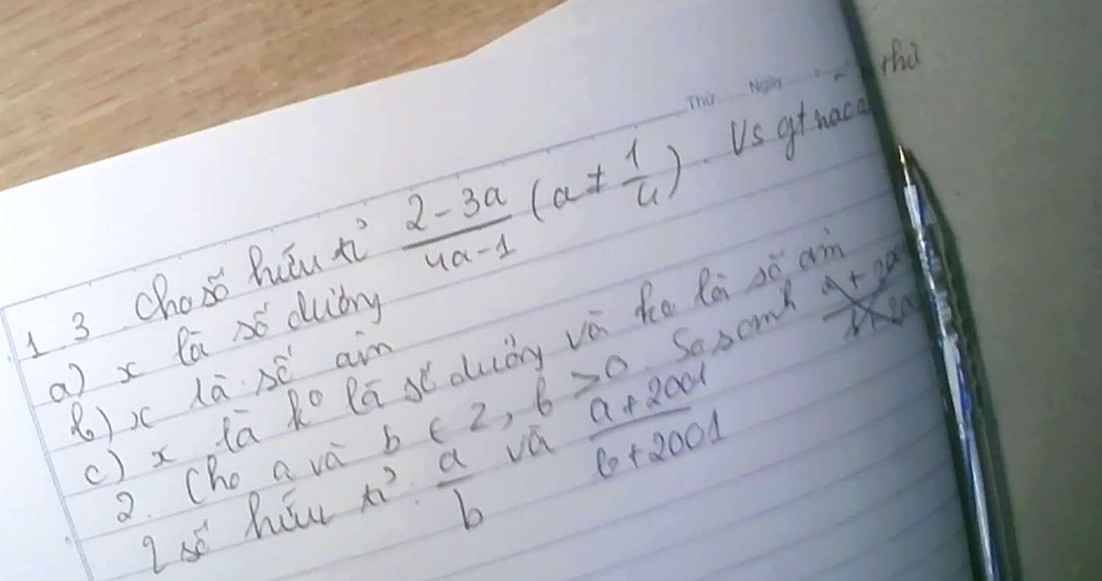 Thứ Ngày
1.3 Cho số hữu tỉ 2-3a/4a-1 (a ≠ 1/4). Vs gt nào của
a) x là số dương
b) x là số âm
c) x là ko là số dương và ko là số âm
2. Cho a và b ∈ Z, b > 0. So sánh
2 số hữu tỉ a/b và a+2001/b+2001